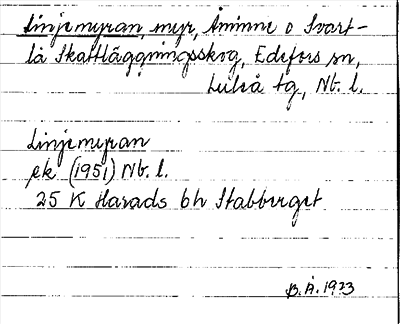 Linjemyran, myr, Åminne o Svart-
lå Skattläggningsskog, Edefors sn,
Luleå tg, Nt. l.
Linjemyran
ek (1951) Nt. l.
25 K Harads bh Stabberget
B.Å. 1973